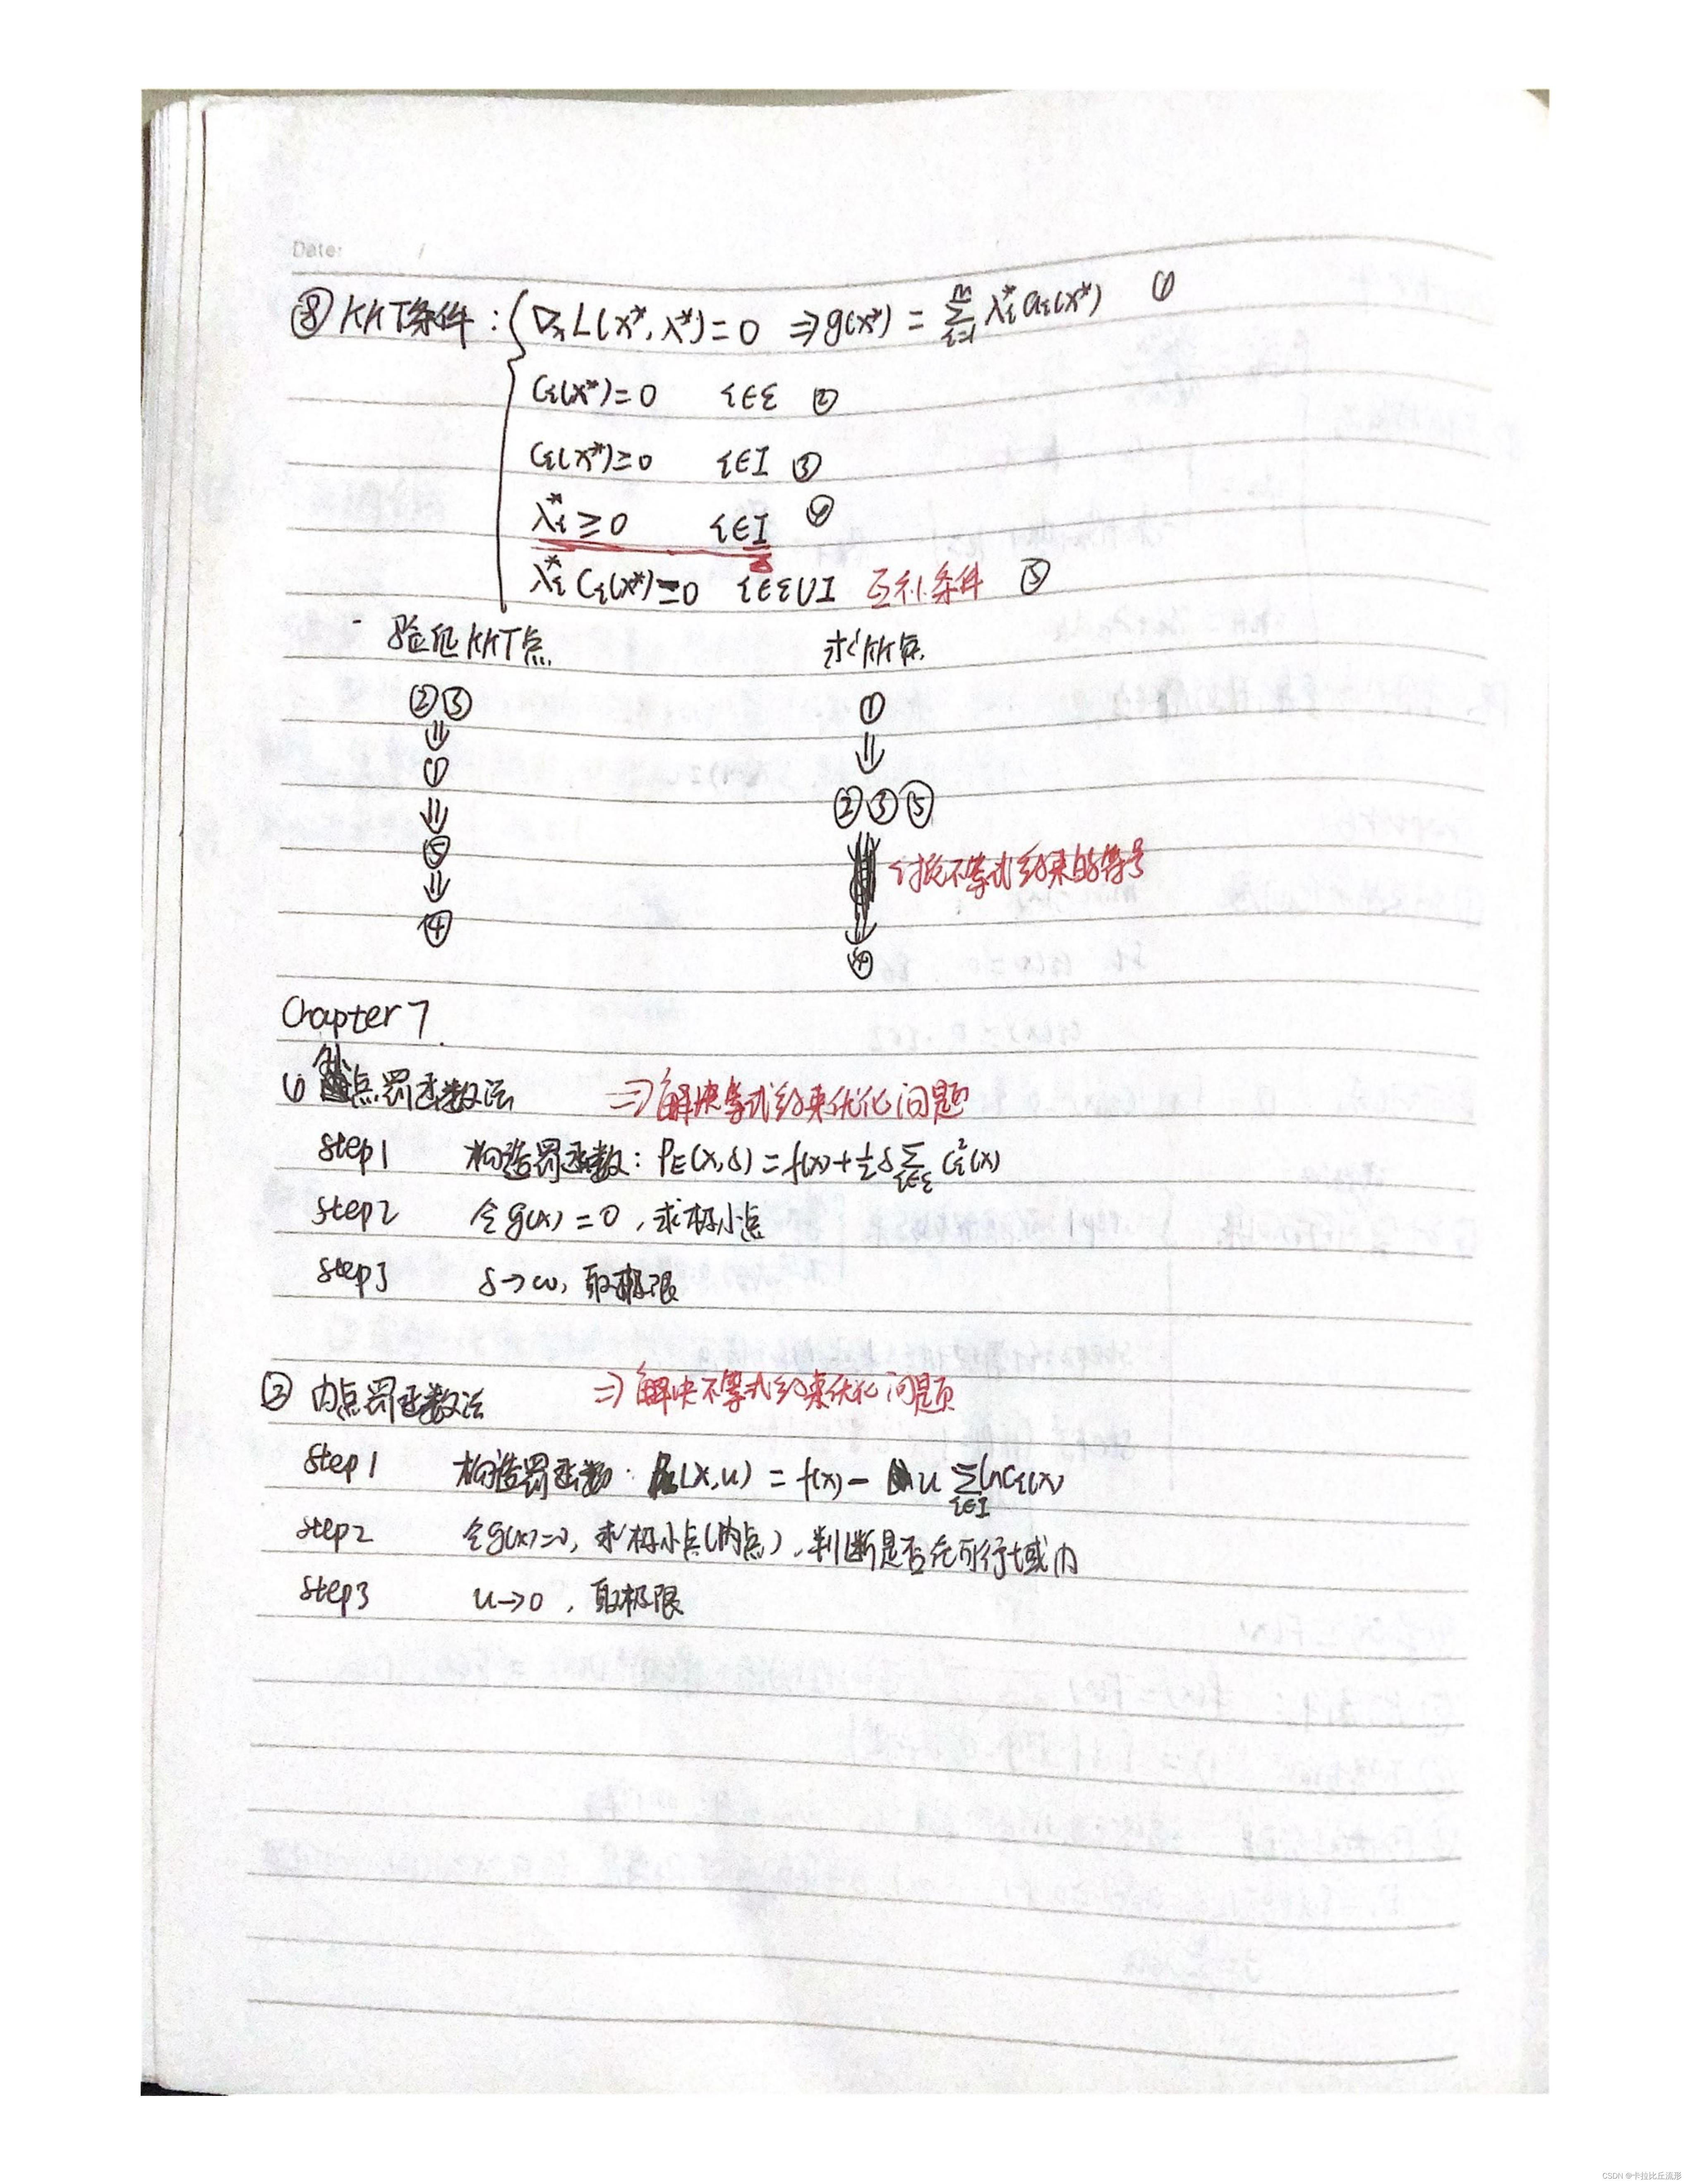 Date: /
⑧ KKT条件: ∇ₓL(x*, λ*) = 0 ⇒ g(x*) = Σᵢ₌₁ᵐ λᵢ* aᵢ(x*) ①
Cᵢ(x*) = 0 i∈ε ②
Cᵢ(x*) ≥ 0 i∈I ③
λᵢ* ≥ 0 i∈I ④
λᵢ* Cᵢ(x*) = 0 i∈ε∪I 互补条件 ⑤
验证KKT点 求KK点
②③ ①
⇓ ⇓
① ②③⑤
⇓ 讨论不等式约束的符号
⑤
⇓
④ ④
Chapter 7.
① 外点罚函数法 ⇒ 解决等式约束优化问题
step1 构造罚函数: P_E(x,δ) = f(x) + ½δ Σ_{i∈ε} Cᵢ²(x)
step2 令g(x) = 0, 求极小点
step3 δ→∞, 取极限
② 内点罚函数法 ⇒ 解决不等式约束优化问题
step1 构造罚函数: (x,u) = f(x) - u Σ_{i∈I} lnCᵢ(x)
step2 令g(x)=0, 求极小点(内点), 判断是否在可行域内
step3 u→0, 取极限
CSDN @卡拉比丘流形